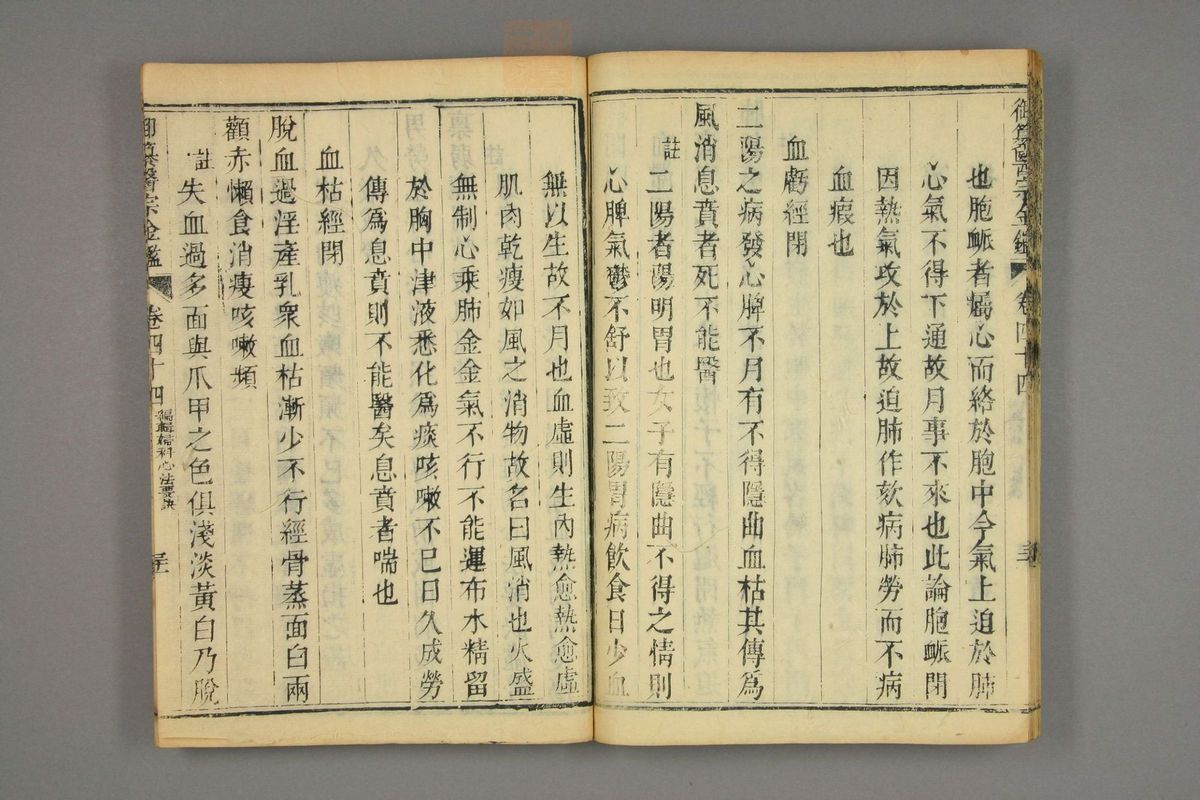 御纂醫宗金鑑 卷四十四
也胞䘑者屬心而絡於胞中今氣上迫於肺
心氣不得下通故月事不來也此論胞䘑閉
因熱氣攻於上故迫肺作欬病肺勞而不病
血瘕也
血虧經閉
二陽之病發心脾不月有不得隱曲血枯其傳爲
風消息賁者死不能醫
註二陽者陽明胃也女子有隱曲不得之情則
心脾氣鬱不舒以致二陽胃病飲食日少血
無以生故不月也血虛則生內熱愈熱愈虛
肌肉乾瘦如風之消物故名曰風消也火盛
無制心乘肺金金氣不行不能運布水精留
於胸中津液悉化爲痰咳嗽不已日久成勞
傳爲息賁則不能醫矣息賁者喘也
血枯經閉
脫血過淫產乳衆血枯漸少不行經骨蒸面白兩
顴赤懶食消瘦咳嗽頻
註失血過多面與爪甲之色俱淺淡黃白乃脫
御纂醫宗金鑑 卷四十四 編輯婦科心法要訣